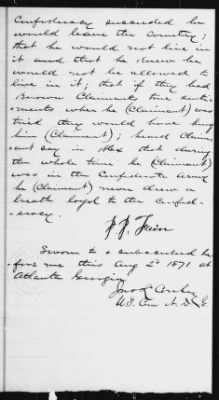 Confederacy succeeded he
would leave the country;
that he would not live in
it and that he knew he
would not be allowed to
live in it; that if they had
known Claimants true senti-
ments when he (Claimant) was
tried they would have hung
him (Claimant); heard Claim-
ant say in 1862 that during
the whole time he (Claimant)
was in the Confederate Army
he (Claimant) never drew a
breath loyal to the Confed-
eracy.
Sworn to & subscribed be-
fore me this Aug 2d 1871 at
Atlanta Georgia